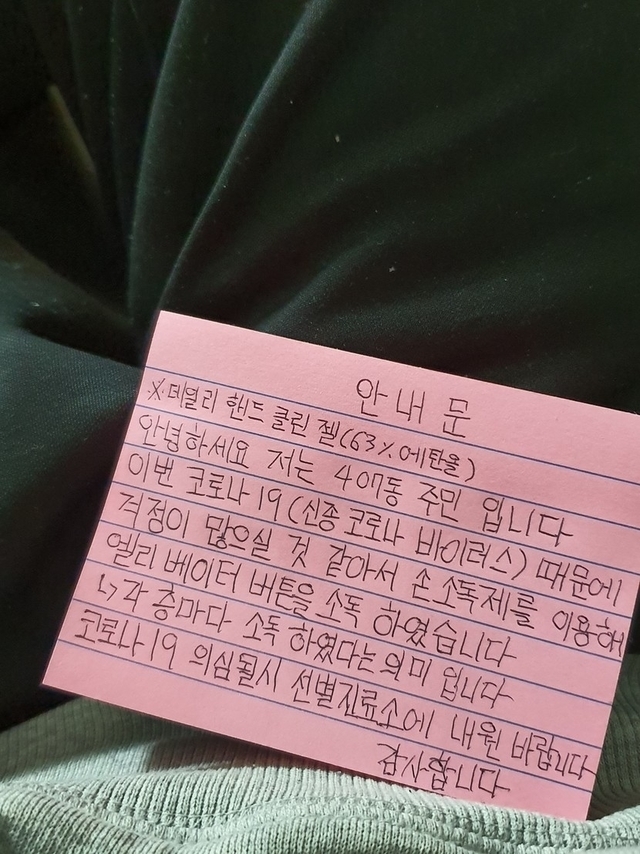 안내문
※데월리 핸드 클린 젤(63% 에탄올)
안녕하세요 저는 407동 주민 입니다
이번 코로나19(신종 코로나 바이러스) 때문에
걱정이 많으실 것 같아서 손 소독제를 이용해
엘리베이터 버튼을 소독 하였습니다
↳각 층마다 소독 하였다는 의미 입니다
코로나19 의심될시 선별진료소에 내원 바랍니다
감사합니다